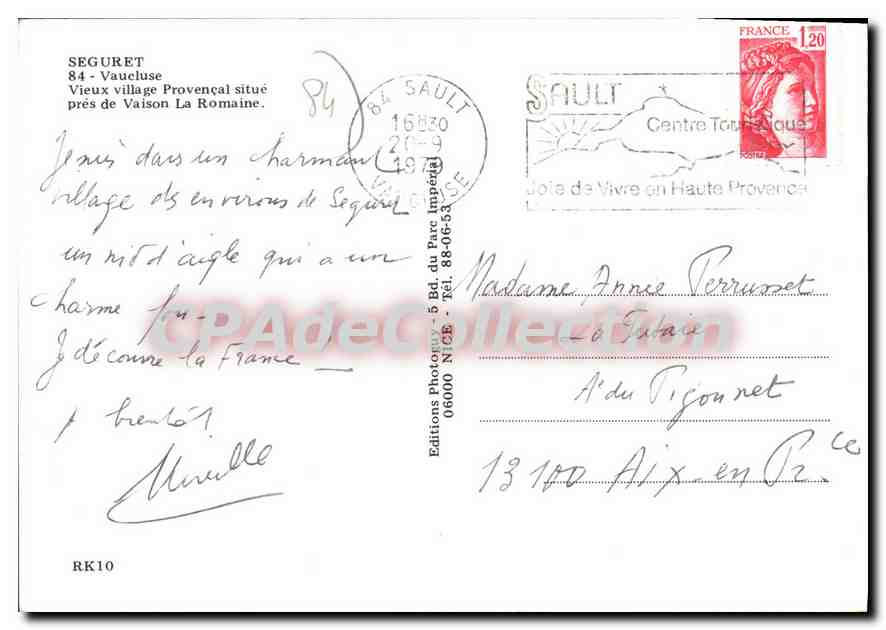 SEGURET
84 - Vaucluse
Vieux village Provençal situé
prés de Vaison La Romaine.
84
84 SAULT
16H30
20-9
VAUCLUSE
SAULT
Centre Touristique
Joie de Vivre en Haute Provence
FRANCE 1,20
POSTES
Je suis dans un charmant
village ds environs de Seguret
un nid d'aigle qui a un
charme fou -
Je découvre la France !
A bientôt
Mireille
Editions Photoguy - 5 Bd. du Parc Impérial
06000 NICE - Tél. 88-06-53
Madame Annie Perrusset
Av du Pigonnet
13100 Aix-en-Pce
CPAdeCollection
RK10